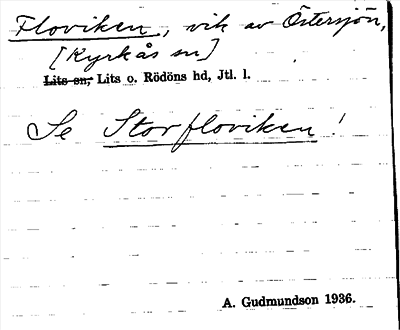 Floviken, vik av Östersjön,
[Kyrkås sn]
Lits sn, Lits o. Rödöns hd, Jtl. l.
Se Storfloviken!
A. Gudmundson 1936.